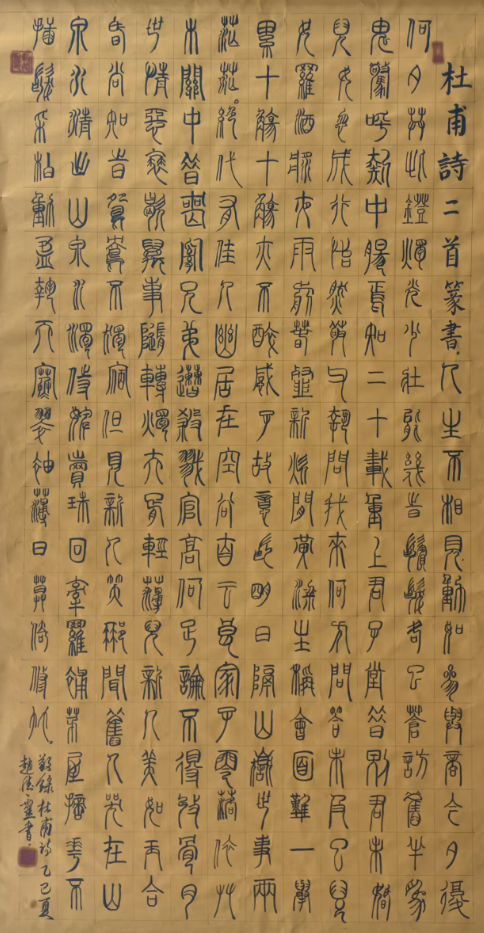 杜甫詩二首篆書人生不相見動如參與商今夕復
何夕共此燈燭光少壯能幾時鬢髮各已蒼訪舊半為
鬼驚呼熱中腸焉知二十載重上君子堂昔別君未婚
兒女忽成行怡然敬父執問我來何方問答未及已兒
女羅酒漿夜雨剪春韭新炊間黃粱主稱會面難一舉
累十觴十觴亦不醉感子故意長明日隔山嶽世事兩
茫茫。絕代有佳人幽居在空谷自云良家子零落依草
木關中昔喪亂兄弟遭殺戮官高何足論不得收骨肉
世情惡衰歇萬事隨轉燭夫婿輕薄兒新人美如玉合
昏尚知時鴛鴦不獨宿但見新人笑那聞舊人哭在山
泉水清出山泉水濁侍婢賣珠回牽蘿補茅屋摘花不
插髮采柏動盈掬天寒翠袖薄日暮倚修竹
錄杜甫詩乙巳夏
趙書